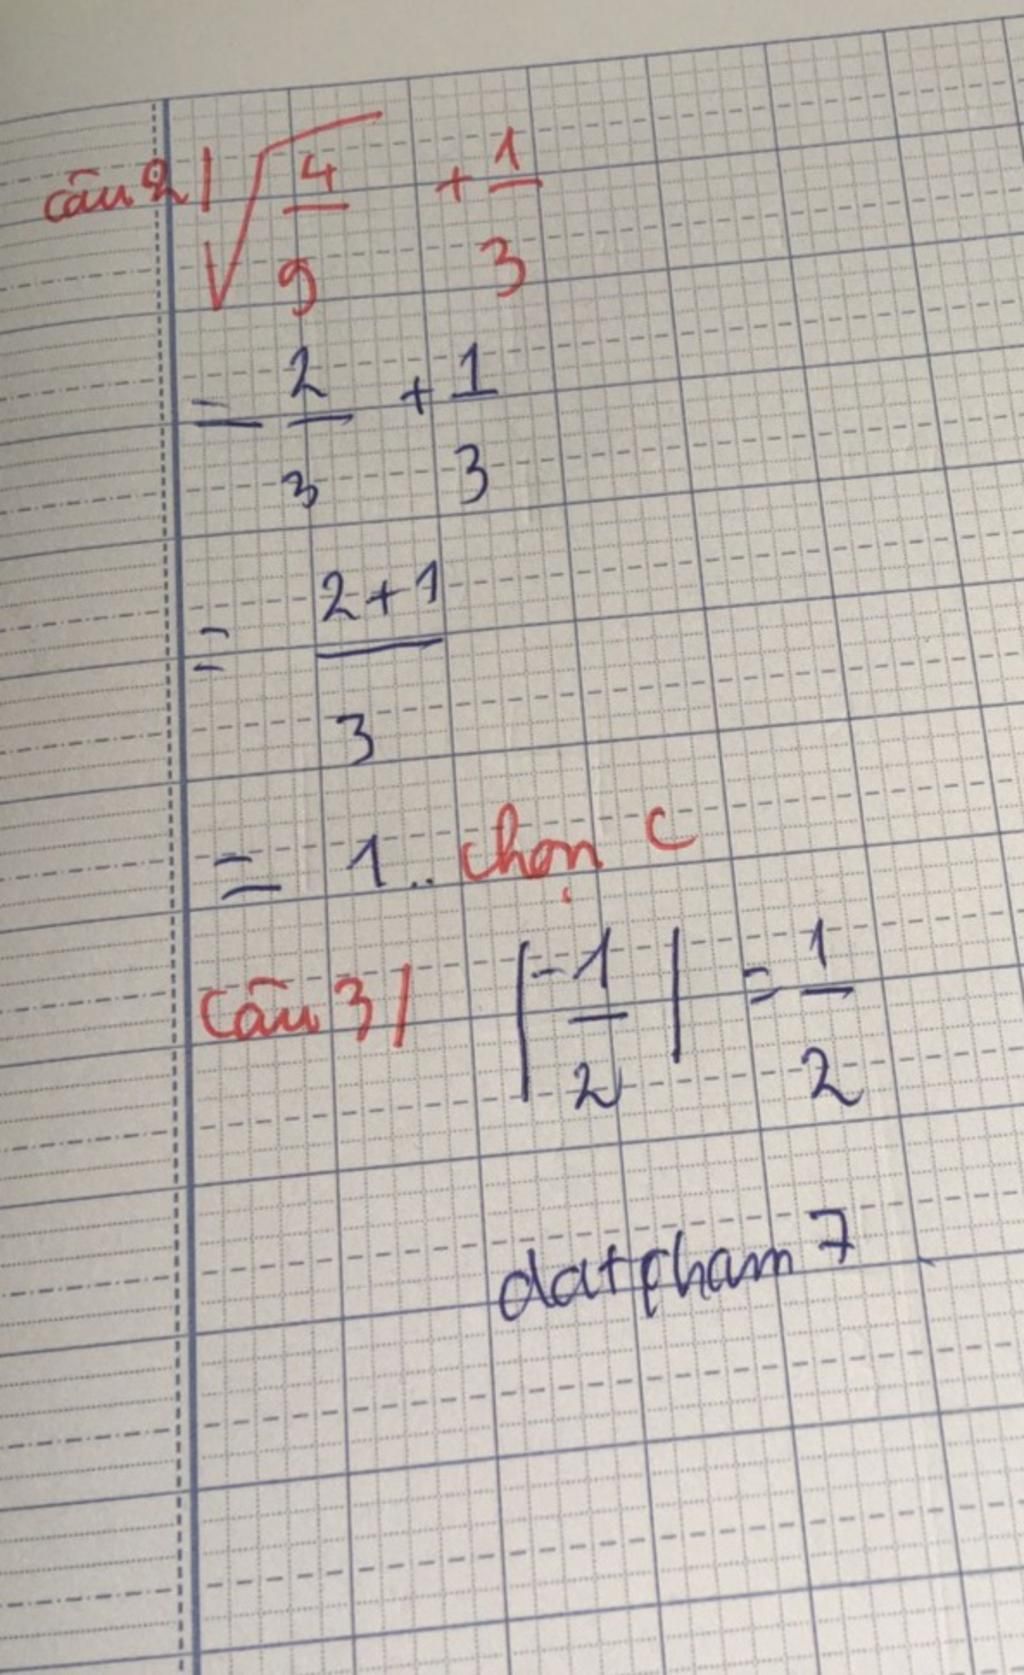 câu 2/ √4/9 + 1/3
= 2/3 + 1/3
= 2+1/3
= 1.. chọn C
câu 3/ |-1/2| = 1/2
datpham7